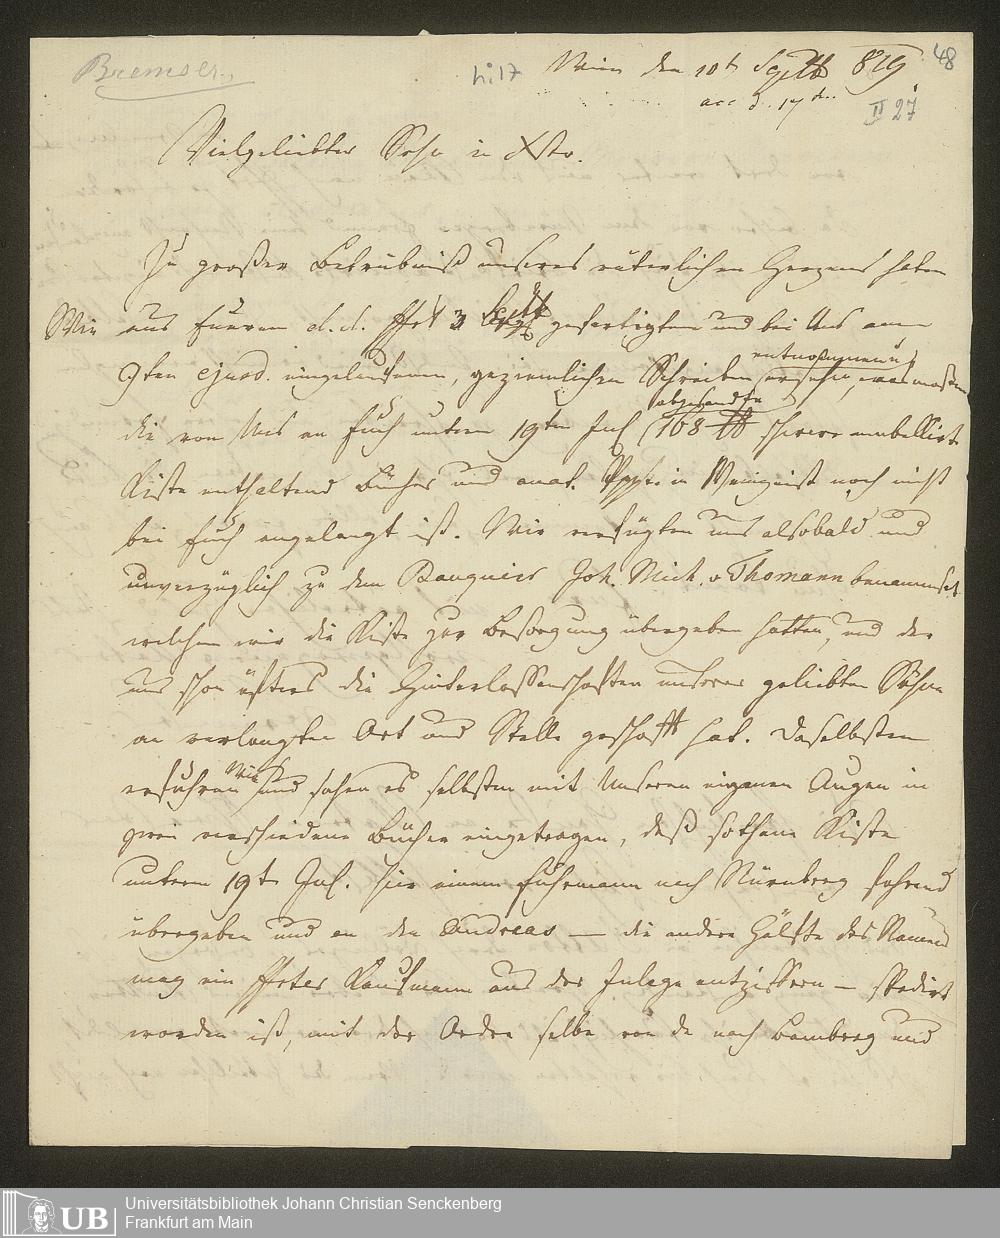 Bremser.
h: 17
Wien den 10t Septb 819.
48
acc d. 17 dn.
II 27
Vielgeliebter Sohn in Xsto.
Zu großer Betrübniß unseres väterlichen Herzens haben
Wir aus Eurem d. d. Ffrt 3 Septb gefertigten und bei Uns am
9ten ejusd. eingelaufenen, geziemlichen Schreiben entnommen,
die von Uns an Euch unterm 19ten Jul abgesandte 108 ℔ schwere emballirte
Kiste enthaltend Bücher und anat. in Weingeist noch nicht
bei Euch angelangt ist. Wir verfügten uns alsobald und
unverzüglich zu dem Banquier Joh. Mich. v Thomann benamset
welchem wir die Kiste zur Besorgung übergeben hatten, und der
uns schon öfters die Hinterlassenschaften unserer geliebten Söhne
an verlangten Ort und Stelle geschafft hat. Daselbsten
erfuhren Wir und sahen es selbsten mit Unseren eigenen Augen in
zwei verschiedene Bücher eingetragen, daß sothane Kiste
unterm 19t Jul. hier einem Fuhrmann nach Nürnberg fahrend
übergeben und an den Andreas — die andere Hälfte des Namens
mag ein Ffrter Kaufmann aus der Inlage entziffern — spedirt
worden ist, mit der Ordre selbe von da nach Bamberg und
Universitätsbibliothek Johann Christian Senckenberg
Frankfurt am Main
UB